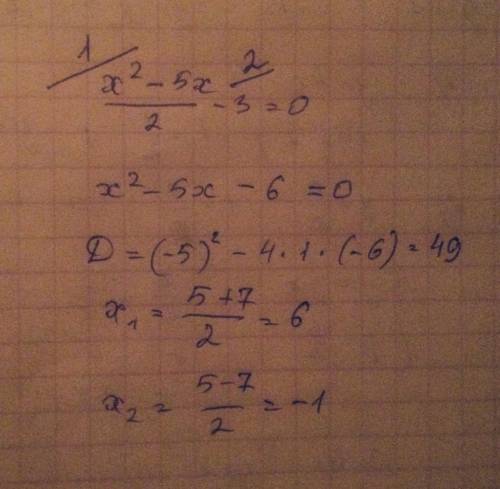 1/ 2/
(x² - 5x)/2 - 3 = 0
x² - 5x - 6 = 0
D = (-5)² - 4 · 1 · (-6) = 49
x₁ = (5+7)/2 = 6
x₂ = (5-7)/2 = -1